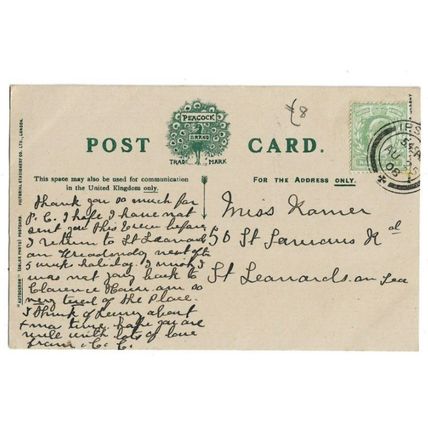 £8
PEACOCK
BRAND
TRADE MARK
POST CARD.
This space may also be used for communication
in the United Kingdom only.
FOR THE ADDRESS ONLY.
PICTORIAL STATIONERY CO., LTD., LONDON.
Thank you so much for
P.C. I hope I have not
sent you this before
I return to St Leonards
on Wednesday next after
5 weeks holiday I wish I
was not going back to
Clarence House am so
very tired of the place.
I think of leaving about
Xmas time hope you are
well with lots of love
from
Miss
50 St Saviours Rd
St Leonards on Sea
AU
06